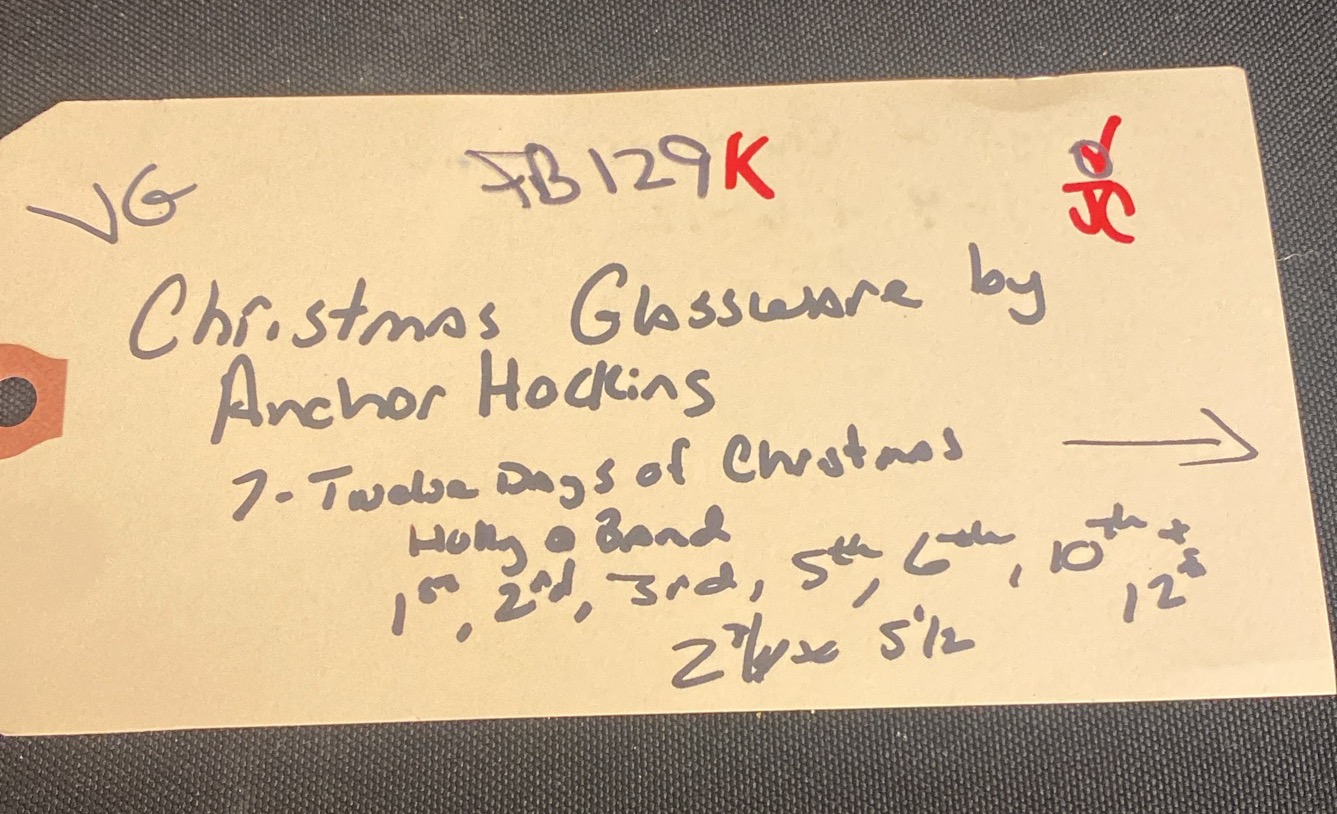 VG FB129K
JC
Christmas Glassware by
Anchor Hocking
7-Twelve Days of Christmas
Holly Band
1st, 2nd, 3rd, 5th, 6th, 10th +
12th
2 3/4 x 5 1/2